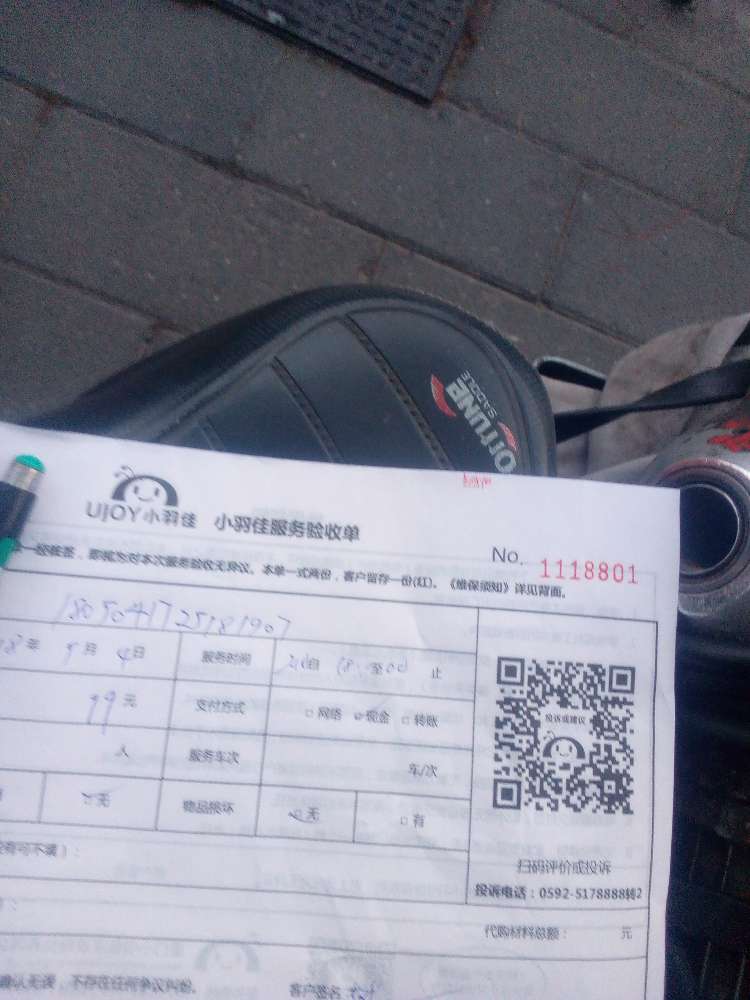 ORTUNE
SADDLE
UJOY小羽佳 小羽佳服务验收单
No. 1118801
一经核签，即视为对本次服务验收无异议。本单一式两份，客户留存一份(红)。《维保须知》详见背面。
1805041725181907
8年 5月 4日 服务时间 至 止
99元 支付方式 网络 现金 转账
人 服务车次 车/次
无 物品损坏 无 有
投诉或建议
扫码评价或投诉
投诉电话：0592-5178888转2
有可不填）：
代购材料总额： 元
确认无误，不存在任何争议纠纷。 客户签名